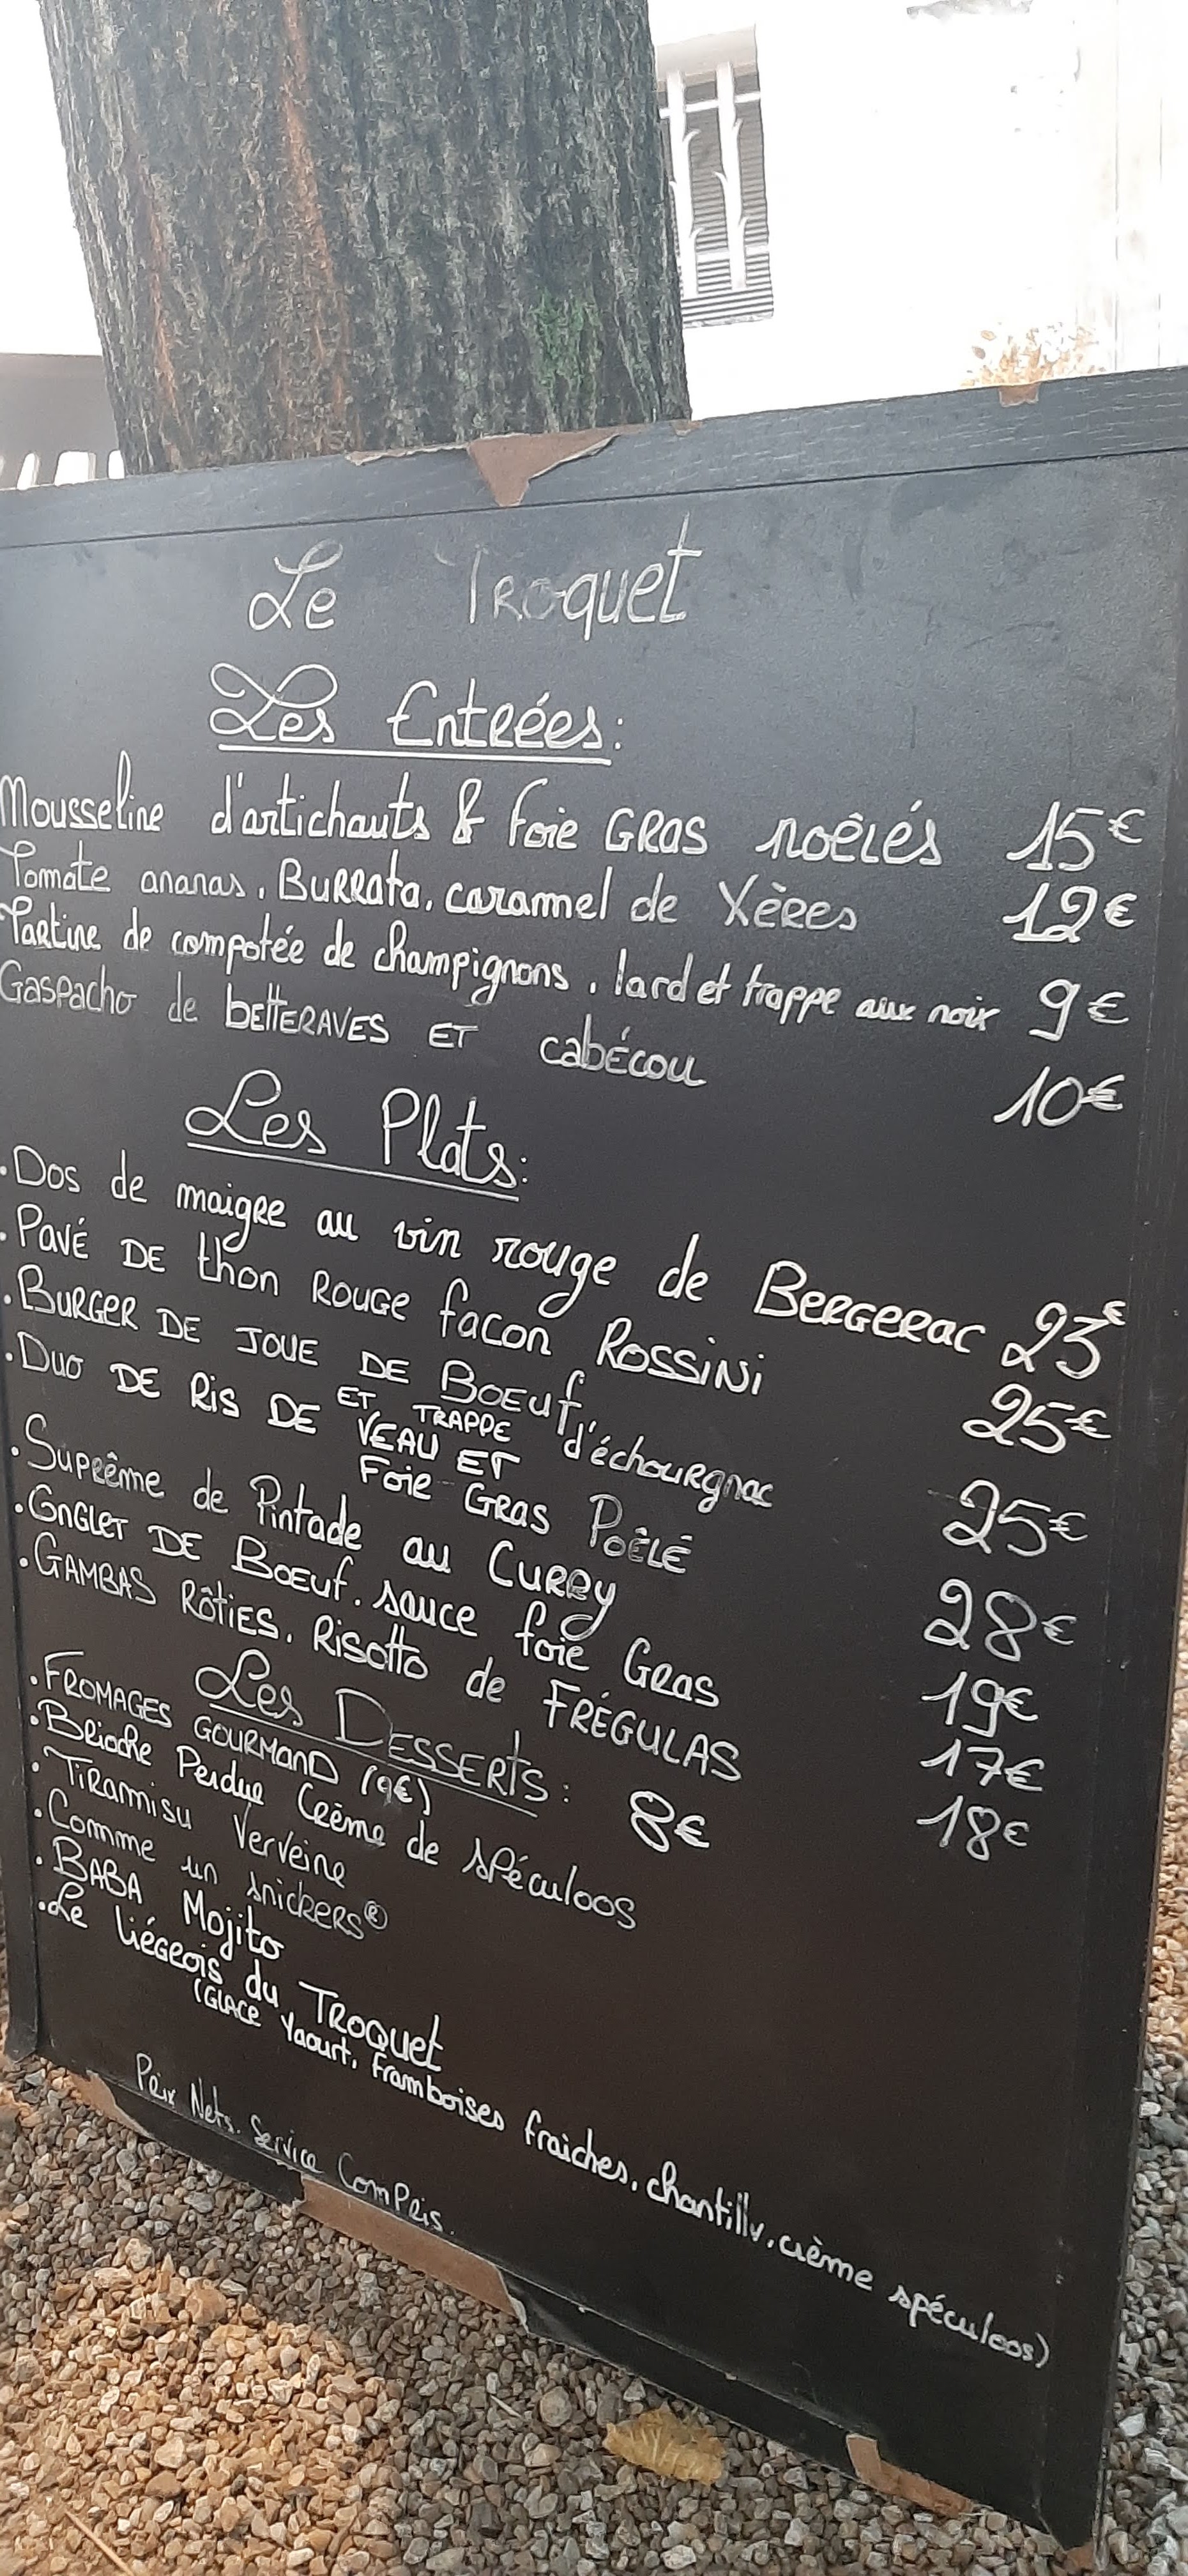 Le Troquet
Les Entrées:
Mousseline d'artichauts & foie GRAS noêlés 15€
Tomate ananas, BURRata, caramel de Xères 12€
Tartine de compotée de champignons, lard et trappe aux noix 9€
Gaspacho de betteRAVES ET cabécou 10€
Les Plats:
.Dos de maigre au vin rouge de BERGERac 23€
.PAVÉ DE thon ROUGE facon ROSSiNi 25€
.BURGER DE JOUE DE BOEuf
ET TRAPPE d'échourgnac 25€
.Duo DE Ris DE VEAU ET
Foie GRAS Poêlé 28€
.Suprême de Pintade au CURRY 19€
.OnGlet DE BOEuf. sauce foie GRas 17€
.GAMBAS RôtiES, Risotto de FRÉGULAS 18€
Les DESSERTS: 8€
.FROMAGES GOURMAND (9€)
.Brioche Perdue Crème de spéculoos
.TiRamisu Verveine
.Comme un snickers®
.BABA Mojito
.Le liégeois du TROQUet
(GLACE Yaourt, framboises fraiches, chantilly, crème spéculoos)
Prix Nets. Service Compris.